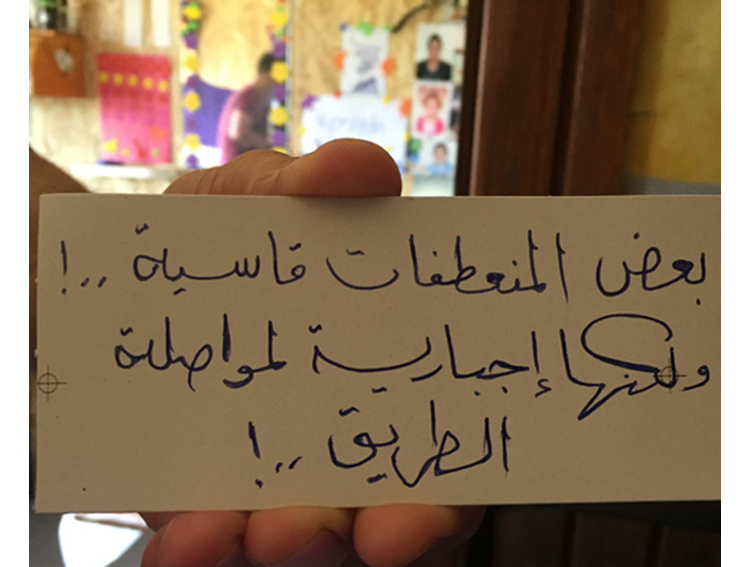 بعض المنعطفات قاسية ..!
ولكنها إجبارية لمواصلة
الطريق ..!